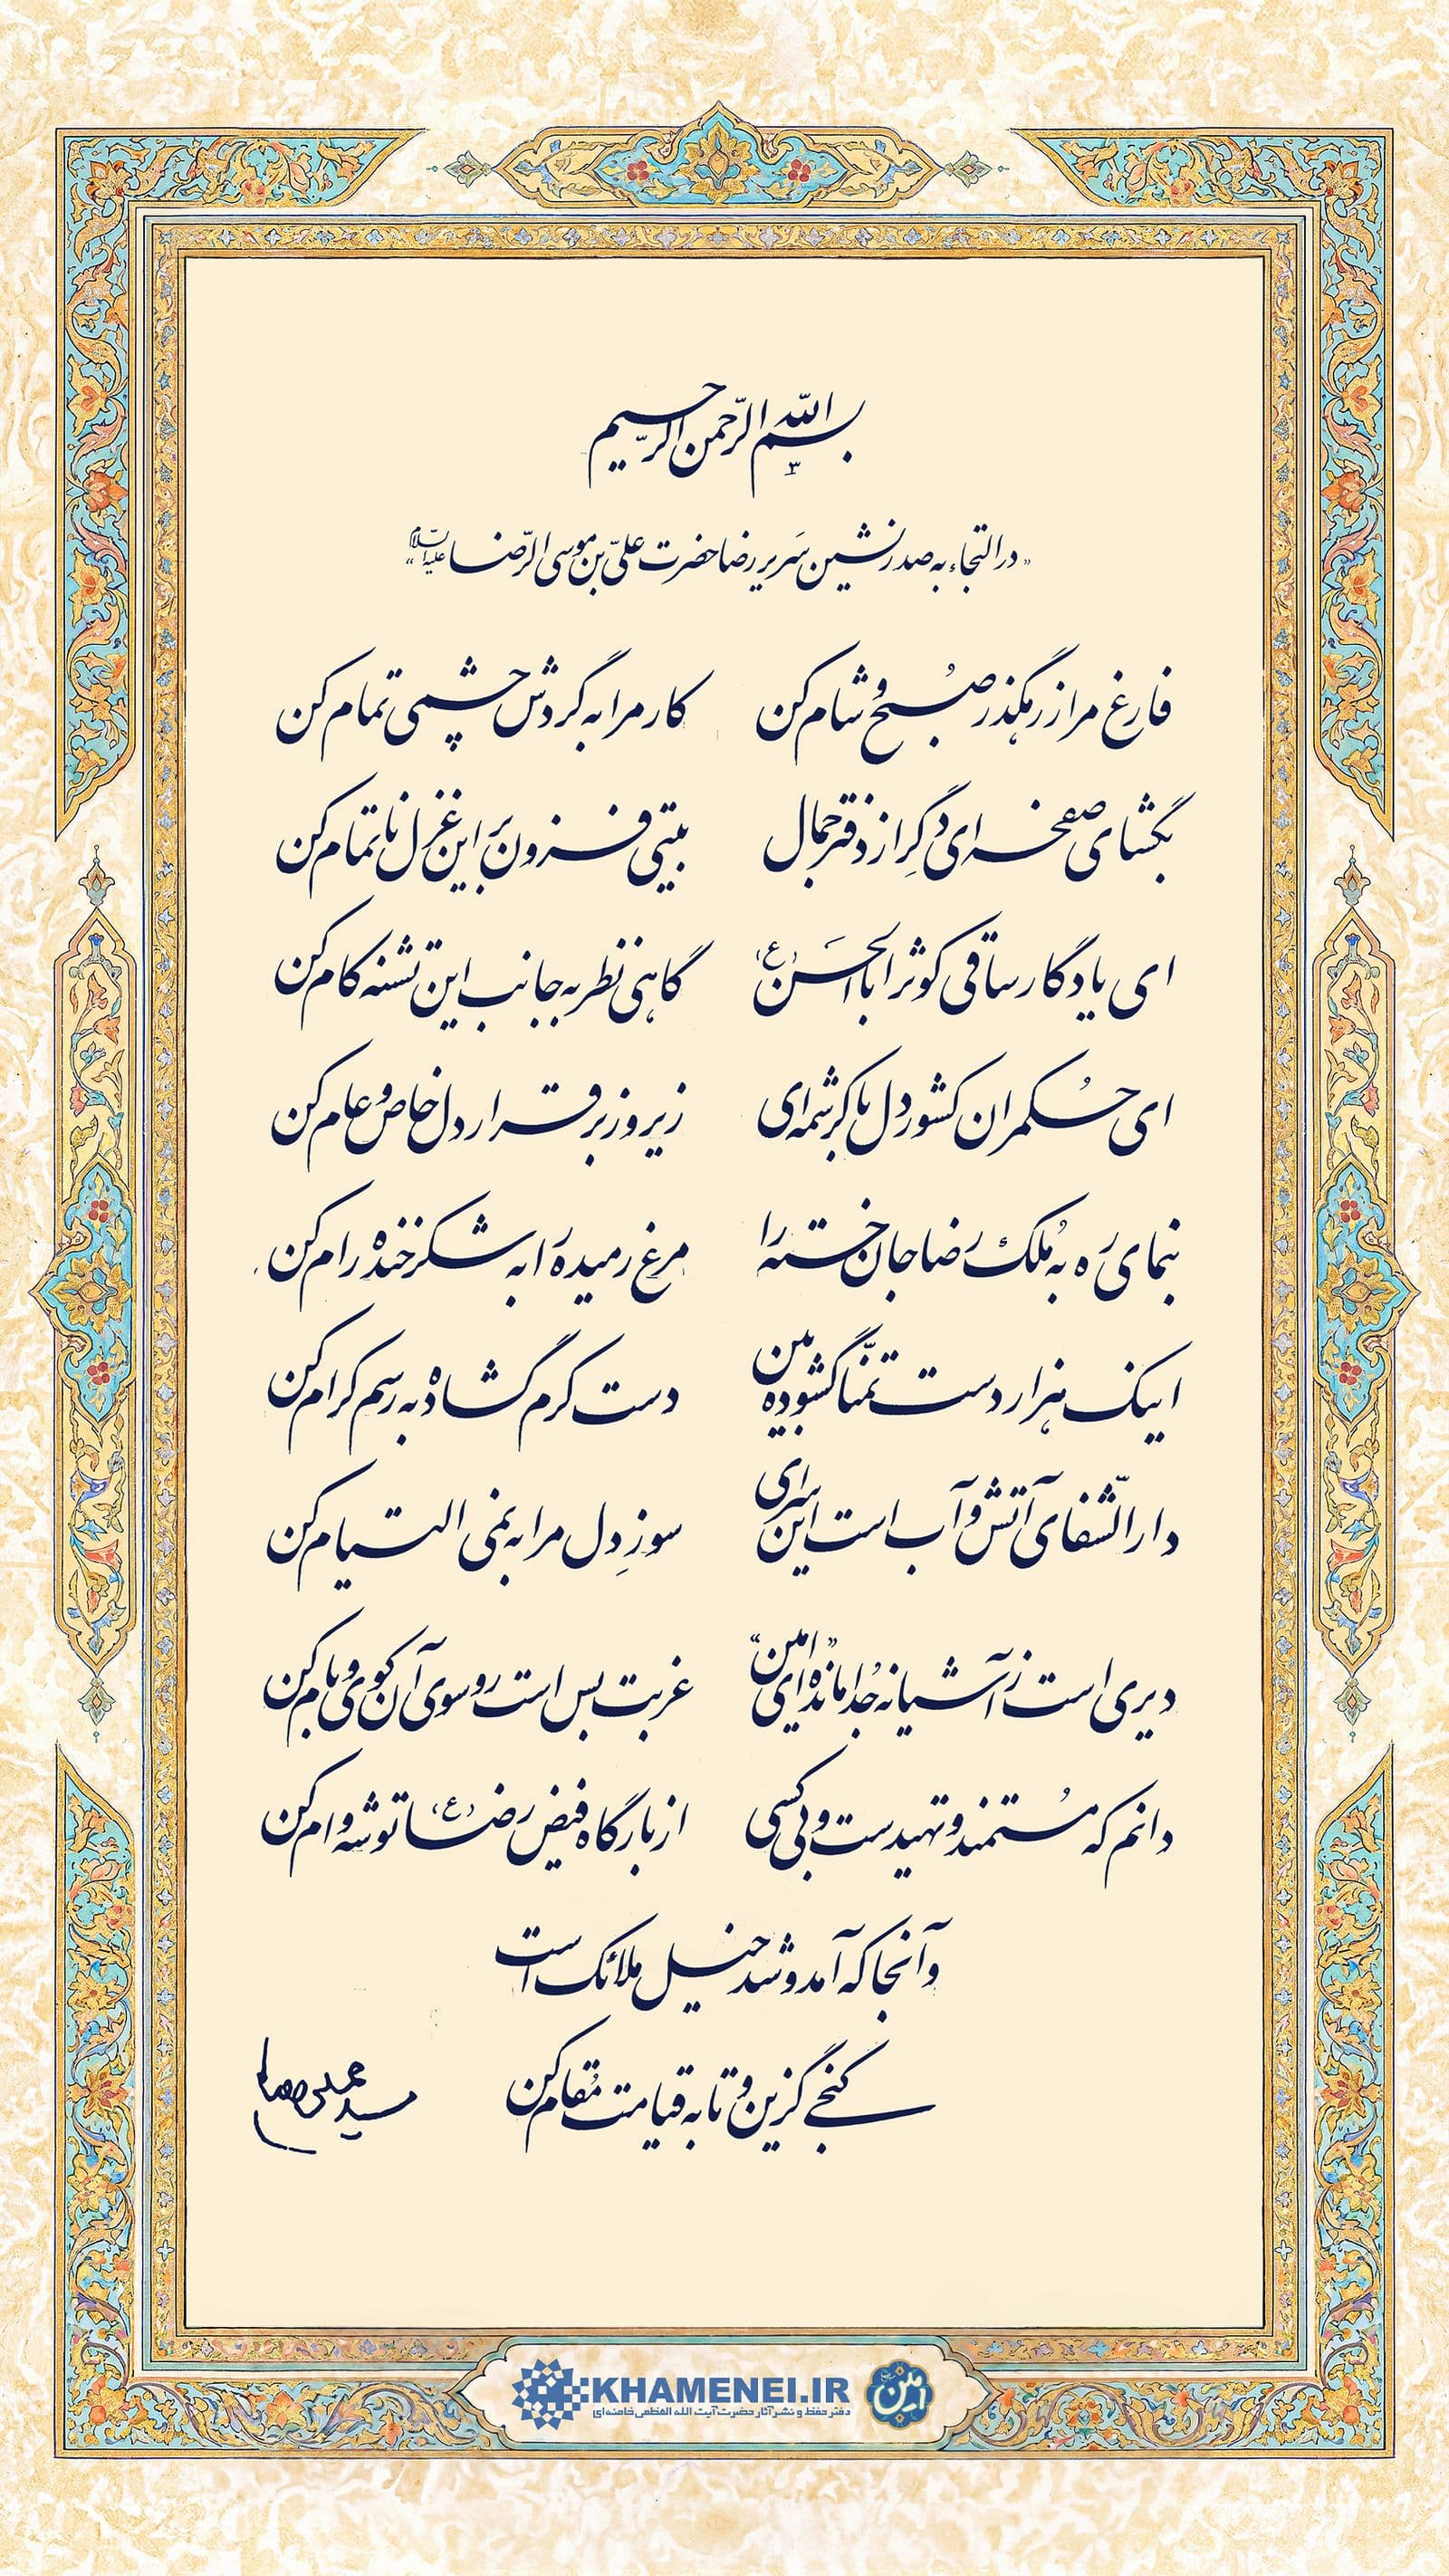 بسم الله الرّحمن الرّحیم
«در التجاء به صدرنشین سَریر رضا حضرت علیّ بن موسی الرّضا علیه السّلام»
فارغ مرا ز رهگذر صُبح و شام کن کار مرا به گردش چشمی تمام کن
بگشای صفحه‌ای دگر از دفتر جمال بیتی فزون بر این غزل ناتمام کن
ای یادگار ساقی کوثر اباالحَسَن (ع) گاهی نظر به جانب این تشنه کام کن
ای حُکمران کشور دل با کرشمه‌ای زیر و زبر قرار دل خاص و عام کن
بنمای ره به مُلک رضا جان خسته را مرغ رمیده را به شکرخنده رام کن
اینک هزار دست تمنّا گشوده بین دست کرم گشاده به رسم کرام کن
دارالشّفای آتش و آب است این سرای سوزِ دل مرا به نمی التیام کن
دیری است ز آشیانه جُدا مانده‌ای «امین» غربت بس است رو سوی آن کوی و بام کن
دانم که مُستمند و تهیدست و بی کسی از بارگاه فیض رضا (ع) توشه وام کن
وآنجا که آمد و شد خیل ملائک است
کنجی گزین و تا به قیامت مُقام کن
KHAMENEI.IR
دفتر حفظ و نشر آثار حضرت آیت الله العظمی خامنه‌ای